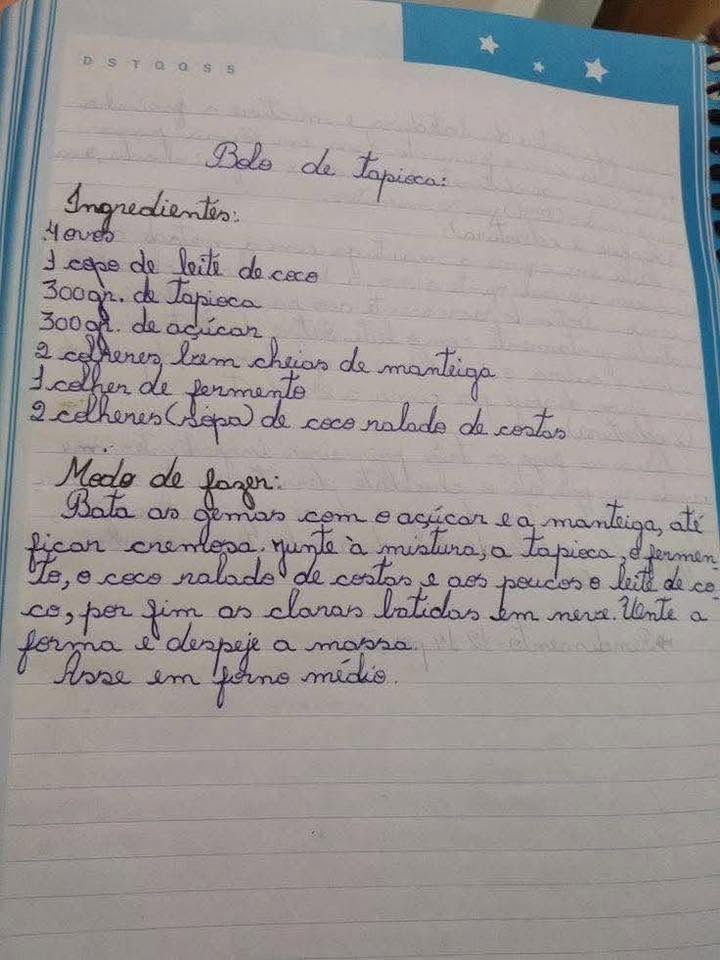 D S T Q Q S S
Bolo de tapioca:
Ingredientes:
4 ovos
1 copo de leite de coco
300gr. de tapioca
300gr. de açúcar
2 colheres bem cheias de manteiga
1 colher de fermento
2 colheres (sopa) de coco ralado de costas
Modo de fazer:
Bata as gemas com o açúcar e a manteiga, até
ficar cremosa. Junte à mistura, a tapioca, o fermen-
to, o coco ralado de costas e aos poucos o leite de co-
co, por fim as claras batidas em neve. Unte a
forma e despeje a massa.
Asse em forno médio.